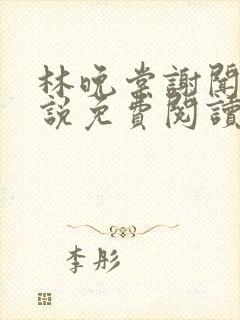 林晚棠謝聞
說免費閱讀
李彤